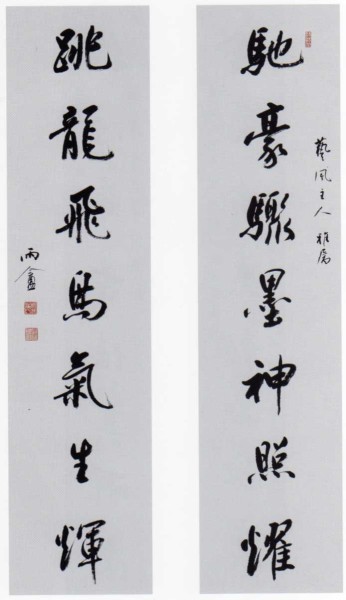 馳豪驟墨神照耀
藝風主人雅屬
跳龍飛馬氣生輝
雨盦